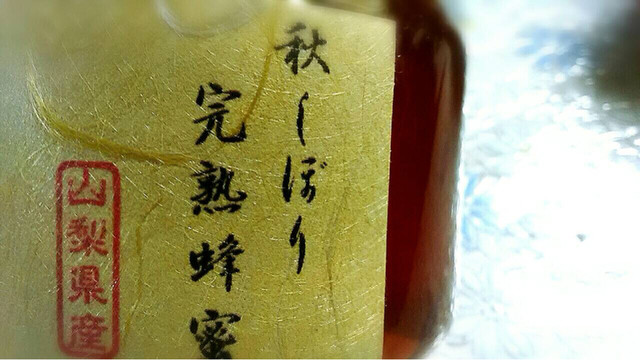 秋しぼり
完熟蜂蜜
山梨県産